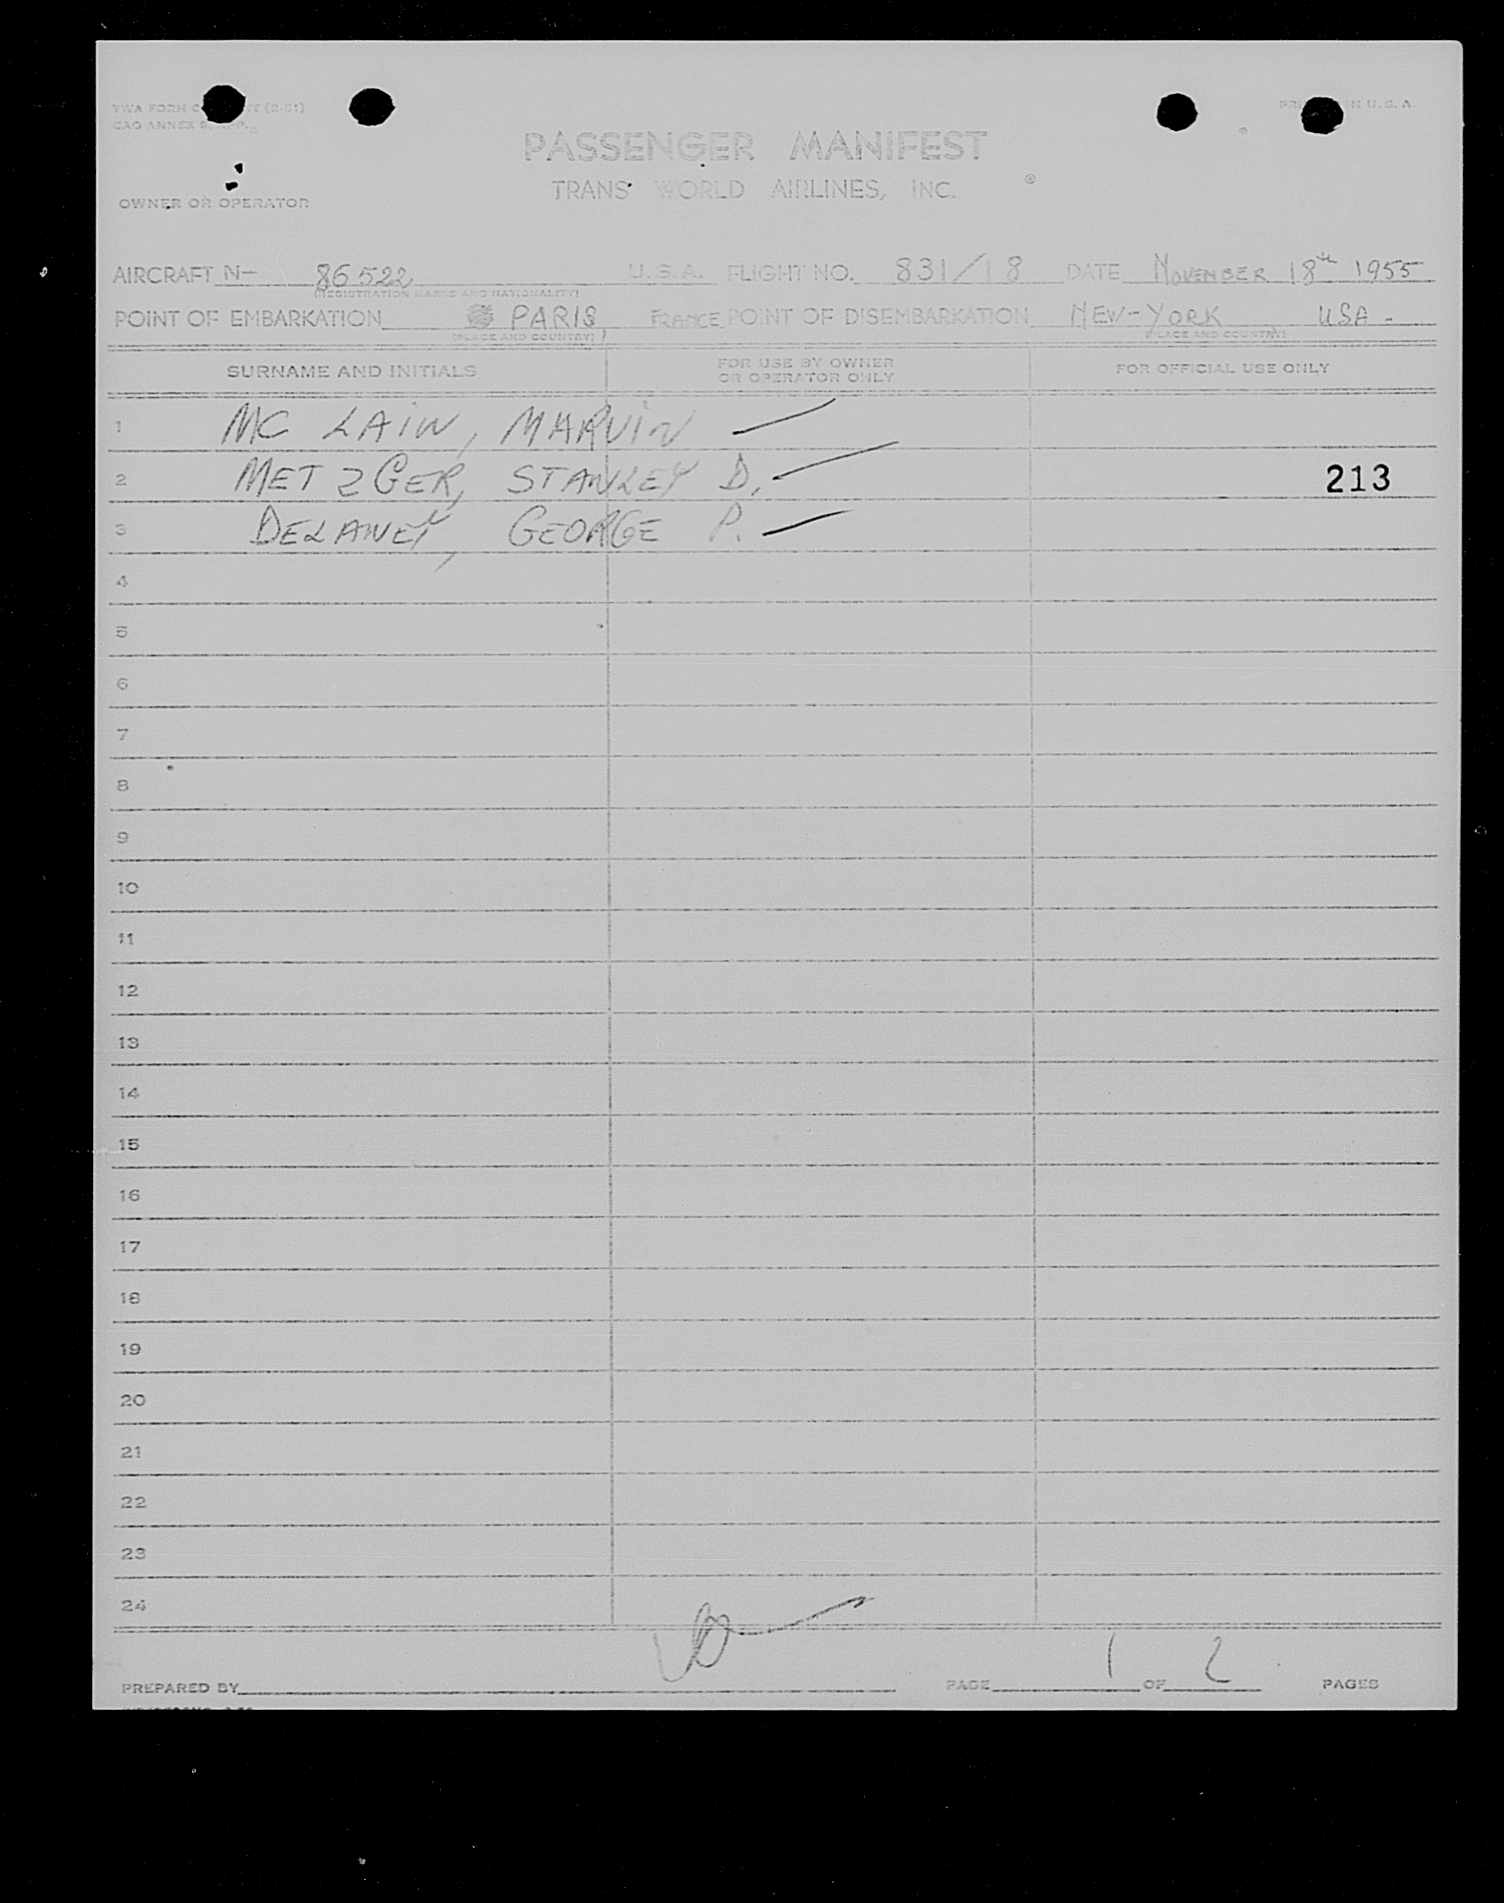 TWA FORM C (2-51)
CAO ANNEX 9, APP.
PRINTED IN U. S. A.
PASSENGER MANIFEST
TRANS WORLD AIRLINES, INC.
OWNER OR OPERATOR
AIRCRAFT N- 86522 U.S.A. FLIGHT NO. 831/18 DATE NOVEMBER 18th 1955
(REGISTRATION MARKS AND NATIONALITY)
POINT OF EMBARKATION PARIS FRANCE POINT OF DISEMBARKATION NEW-YORK, USA -
(PLACE AND COUNTRY) (PLACE AND COUNTRY)
SURNAME AND INITIALS FOR USE BY OWNER OR OPERATOR ONLY FOR OFFICIAL USE ONLY
1 MC LAIN, MARVIN
2 METZGER, STANLEY D. 213
3 DELANEY, GEORGE P.
4
5
6
7
8
9
10
11
12
13
14
15
16
17
18
19
20
21
22
23
24
PREPARED BY PAGE 1 OF 2 PAGES